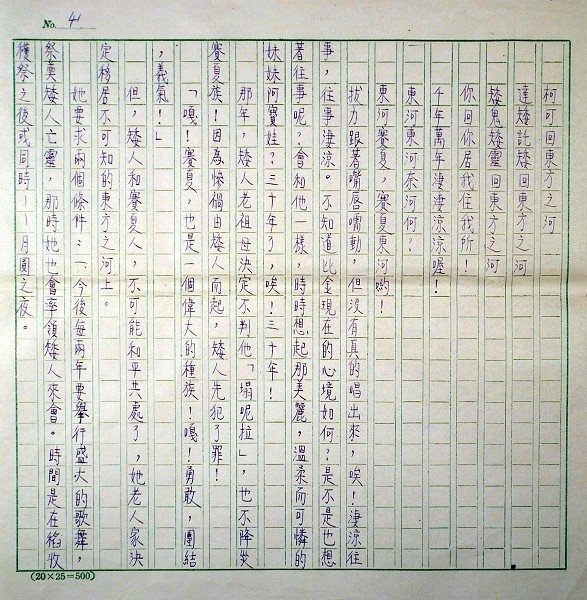 No. 41
柯可回東方之河
達矮託矮回東方之河
矮鬼矮靈回東方之河
你回你居我住我所！
千年萬年淒淒涼涼喔！
東河東河奈河何？
東河賽夏，賽夏東河喲！
拔力跟著嘴唇嚅動，但沒有真的唱出來，唉！淒涼往
事，往事淒涼。不知道比金現在的心境如何？是不是也想
著往事呢？會和他一樣，時時想起那美麗，溫柔而可憐的
妹妹阿寶娃？三十年了，唉！三十年！
那年，矮人老祖母決定不判他「塌呢拉」，也不降災
賽夏族！因為慘禍由矮人而起，矮人先犯了罪！
「嘎！賽夏，也是一個偉大的種族！嘎！勇敢，團結
，義氣！」
但，矮人和賽夏人，不可能和平共處了，她老人家決
定移居不可知的東方之河上。
她要求兩個條件：一、今後每兩年要舉行盛大的歌舞，
祭奠矮人亡靈，那時她也會率領矮人來會。時間是在稻收
穫祭之後或同時｜｜月圓之夜。
(20×25=500)